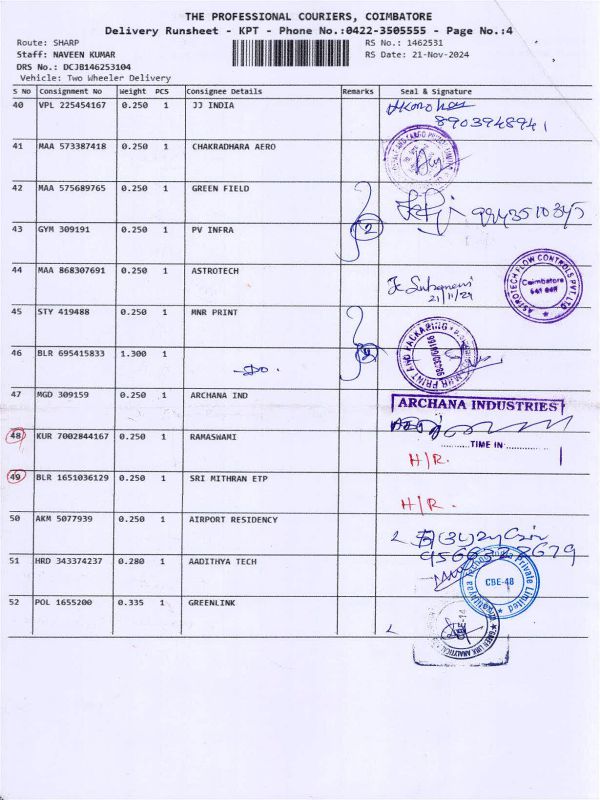 THE PROFESSIONAL COURIERS, COIMBATORE
Delivery Runsheet - KPT - Phone No.:0422-3505555 - Page No.:4
Route: SHARP RS No.: 1462531
Staff: NAVEEN KUMAR RS Date: 21-Nov-2024
DRS No.: DCJB146253104
Vehicle: Two Wheeler Delivery
S No Consignment No Weight PCS Consignee Details Remarks Seal & Signature
40 VPL 225454167 0.250 1 JJ INDIA
8903948941
41 MAA 573387418 0.250 1 CHAKRADHARA AERO
42 MAA 575689765 0.250 1 GREEN FIELD
9943510345
43 GYM 309191 0.250 1 PV INFRA 2
44 MAA 868307691 0.250 1 ASTROTECH
21/11/24
ASTROTECH FLOW CONTROLS PVT LTD
Coimbatore
45 STY 419488 0.250 1 MNR PRINT
PRINT AND PACKAGING
46 BLR 695415833 1.300 1 -Do-
47 MGD 309159 0.250 1 ARCHANA IND
ARCHANA INDUSTRIES
TIME IN
48 KUR 7002844167 0.250 1 RAMASWAMI H/R.
49 BLR 1651036129 0.250 1 SRI MITHRAN ETP H/R.
50 AKM 5077939 0.250 1 AIRPORT RESIDENCY
51 HRD 343374237 0.280 1 AADITHYA TECH
CBE-48
Private Limited
52 POL 1655200 0.335 1 GREENLINK
CBE-14